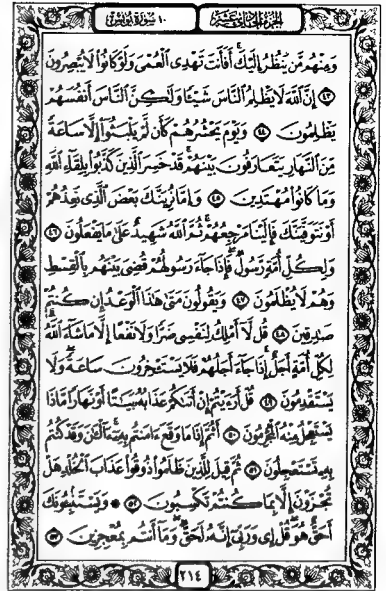 الجزء الحادي عشر ١٠ سورة يونس
وَمِنْهُم مَّن يَنظُرُ إِلَيْكَ أَفَأَنتَ تَهْدِى ٱلْعُمْىَ وَلَوْ كَانُوا۟ لَا يُبْصِرُونَ
٤٣ إِنَّ ٱللَّهَ لَا يَظْلِمُ ٱلنَّاسَ شَيْـًٔا وَلَٰكِنَّ ٱلنَّاسَ أَنفُسَهُمْ
يَظْلِمُونَ ٤٤ وَيَوْمَ يَحْشُرُهُمْ كَأَن لَّمْ يَلْبَثُوٓا۟ إِلَّا سَاعَةً
مِّنَ ٱلنَّهَارِ يَتَعَارَفُونَ بَيْنَهُمْ قَدْ خَسِرَ ٱلَّذِينَ كَذَّبُوا۟ بِلِقَآءِ ٱللَّهِ
وَمَا كَانُوا۟ مُهْتَدِينَ ٤٥ وَإِمَّا نُرِيَنَّكَ بَعْضَ ٱلَّذِى نَعِدُهُمْ
أَوْ نَتَوَفَّيَنَّكَ فَإِلَيْنَا مَرْجِعُهُمْ ثُمَّ ٱللَّهُ شَهِيدٌ عَلَىٰ مَا يَفْعَلُونَ ٤٦
وَلِكُلِّ أُمَّةٍ رَّسُولٌ فَإِذَا جَآءَ رَسُولُهُمْ قُضِىَ بَيْنَهُم بِٱلْقِسْطِ
وَهُمْ لَا يُظْلَمُونَ ٤٧ وَيَقُولُونَ مَتَىٰ هَٰذَا ٱلْوَعْدُ إِن كُنتُمْ
صَٰدِقِينَ ٤٨ قُل لَّآ أَمْلِكُ لِنَفْسِى ضَرًّا وَلَا نَفْعًا إِلَّا مَا شَآءَ ٱللَّهُ
لِكُلِّ أُمَّةٍ أَجَلٌ إِذَا جَآءَ أَجَلُهُمْ فَلَا يَسْتَـْٔخِرُونَ سَاعَةً وَلَا
يَسْتَقْدِمُونَ ٤٩ قُلْ أَرَءَيْتُمْ إِنْ أَتَىٰكُمْ عَذَابُهُۥ بَيَٰتًا أَوْ نَهَارًا مَّاذَا
يَسْتَعْجِلُ مِنْهُ ٱلْمُجْرِمُونَ ٥٠ أَثُمَّ إِذَا مَا وَقَعَ ءَامَنتُم بِهِۦٓ ءَآلْـَٰٔنَ وَقَدْ كُنتُم
بِهِۦ تَسْتَعْجِلُونَ ٥١ ثُمَّ قِيلَ لِلَّذِينَ ظَلَمُوا۟ ذُوقُوا۟ عَذَابَ ٱلْخُلْدِ هَلْ
تُجْزَوْنَ إِلَّا بِمَا كُنتُمْ تَكْسِبُونَ ٥٢ ۞ وَيَسْتَنۢبِـُٔونَكَ
أَحَقٌّ هُوَ قُلْ إِى وَرَبِّىٓ إِنَّهُۥ لَحَقٌّ وَمَآ أَنتُم بِمُعْجِزِينَ ٥٣
٢١٤